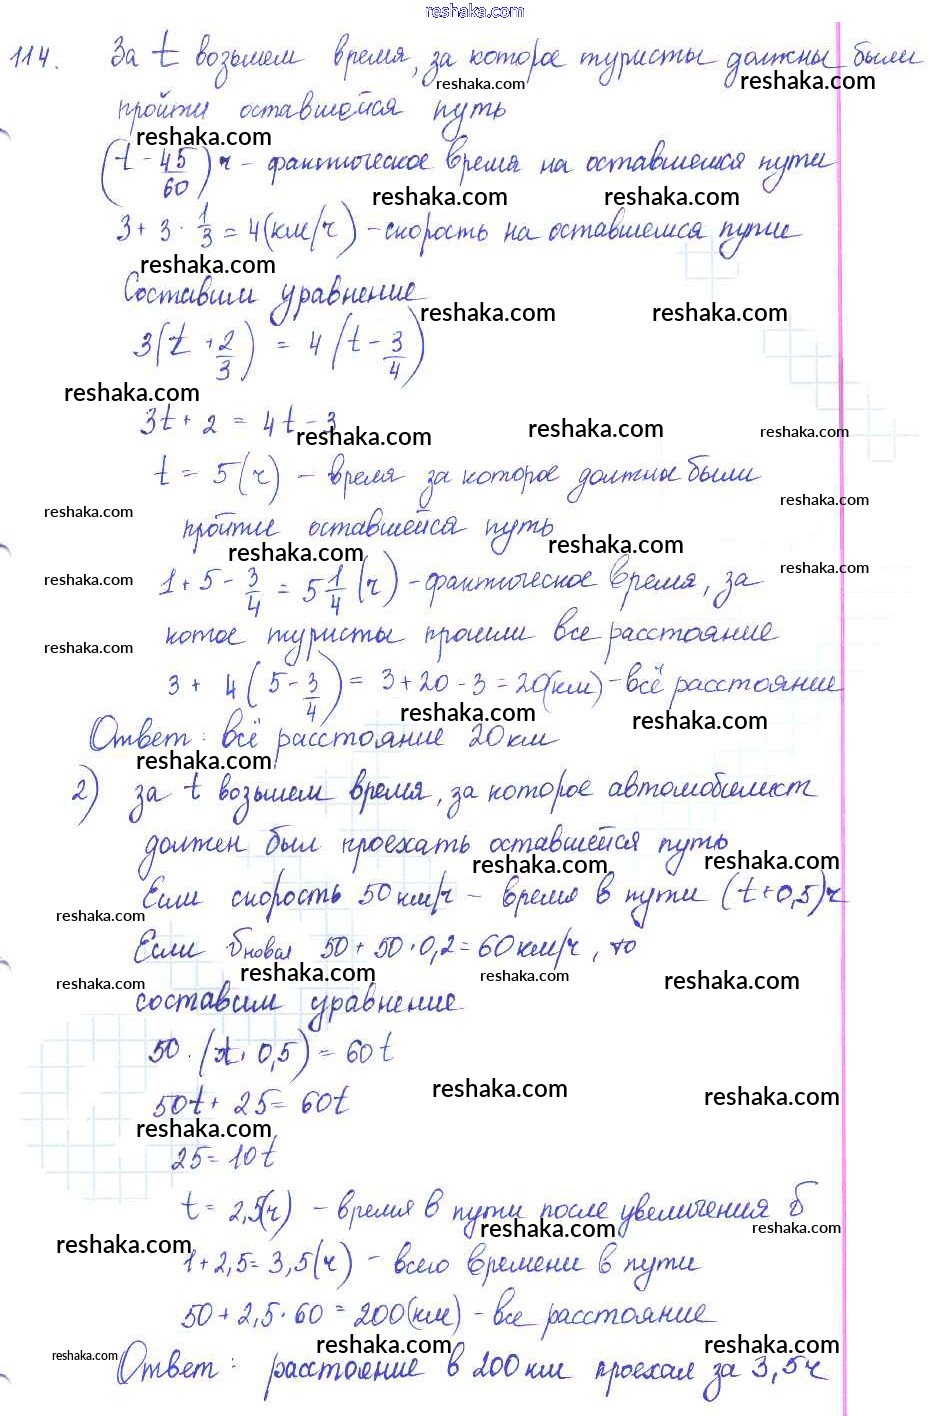 reshaka.com
114. За t возьмем время, за которое туристы должны были
reshaka.com reshaka.com
пройти оставшейся путь
reshaka.com
(t - 45/60) ч - фактическое время на оставшемся пути
reshaka.com reshaka.com
3 + 3 · 1/3 = 4 (км/ч) - скорость на оставшемся пути
reshaka.com
Составим уравнение
reshaka.com reshaka.com
3(t + 2/3) = 4(t - 3/4)
reshaka.com reshaka.com
3t + 2 = 4t - 3
reshaka.com reshaka.com reshaka.com
t = 5 (ч) - время за которое должны были
reshaka.com reshaka.com
пройти оставшейся путь
reshaka.com reshaka.com
1 + 5 - 3/4 = 5 1/4 (ч) - фактическое время, за
reshaka.com reshaka.com
котое туристы прошли все расстояние
reshaka.com
3 + 4(5 - 3/4) = 3 + 20 - 3 = 20 (км) - всё расстояние
reshaka.com reshaka.com
Ответ: всё расстояние 20 км
reshaka.com reshaka.com
2) за t возьмем время, за которое автомобилист
должен был проехать оставшейся путь
reshaka.com reshaka.com
Если скорость 50 км/ч - время в пути (t + 0,5) ч
reshaka.com
Если новая 50 + 50 · 0,2 = 60 км/ч, то
reshaka.com reshaka.com reshaka.com reshaka.com
составим уравнение
50 · (t + 0,5) = 60t
reshaka.com reshaka.com
50t + 25 = 60t
reshaka.com
25 = 10t
reshaka.com
t = 2,5 (ч) - время в пути после увеличения
reshaka.com reshaka.com reshaka.com
1 + 2,5 = 3,5 (ч) - всего времени в пути
50 + 2,5 · 60 = 200 (км) - все расстояние
reshaka.com reshaka.com reshaka.com
Ответ: расстоение в 200 км проехал за 3,5 ч